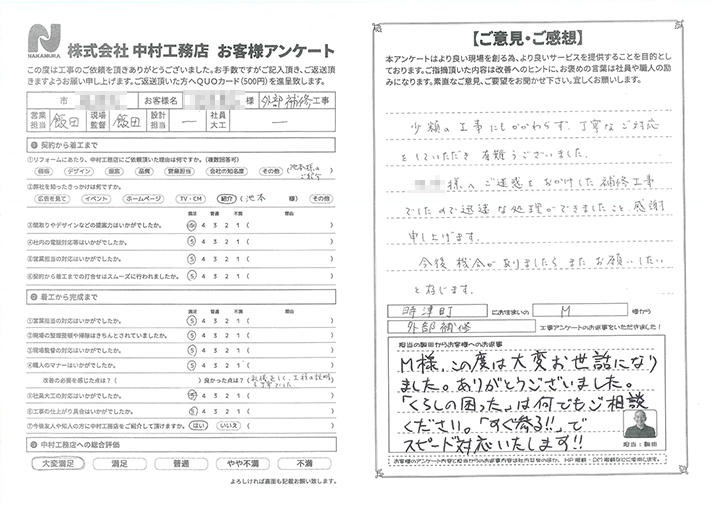 NAKAMURA
株式会社 中村工務店 お客様アンケート
この度は工事のご依頼を頂きありがとうございました。お手数ですがご記入頂き、ご返送頂
きますようお願い申し上げます。ご返送頂いた方へQUOカード(500円)を進呈致します。
市 お客様名 様 外部補修工事
営業担当 飯田 現場監督 飯田 設計担当 ー 社員大工 ー
❶ 契約から着工まで
①リフォームにあたり、中村工務店にご依頼頂いた理由は何ですか。(複数回答可)
価格 デザイン 提案 品質 営業担当 会社の知名度 その他 (池本様のご紹介)
②弊社を知ったきっかけは何ですか。
広告を見て イベント ホームページ TV・CM 紹介 (池本 様) その他
満足 普通 不満 理由
③間取りやデザインなどの提案力はいかがでしたか。 5 4 3 2 1 ( )
④社内の電話対応等はいかがでしたか。 5 4 3 2 1 ( )
⑤営業担当の対応はいかがでしたか。 5 4 3 2 1 ( )
⑥契約から着工までの打合せはスムーズに行われましたか。 5 4 3 2 1 ( )
❷ 着工から完成まで
満足 普通 不満 理由
①営業担当の対応はいかがでしたか。 5 4 3 2 1 ( )
②現場の整理整頓や掃除はきちんとされていましたか。 5 4 3 2 1 ( )
③現場監督の対応はいかがでしたか。 5 4 3 2 1 ( )
④職人のマナーはいかがでしたか。 5 4 3 2 1 ( )
改善の必要を感じた点は?( ) 良かった点は?(礼儀正しく、工程の説明も丁寧でした)
⑤社員大工の対応はいかがでしたか。 5 4 3 2 1 ( )
⑥工事の仕上がり具合はいかがでしたか。 5 4 3 2 1 ( )
⑦今後友人や知人の方に中村工務店をご紹介して頂けますか。 はい いいえ ( )
❸ 中村工務店への総合評価
大変満足 満足 普通 やや不満 不満
よろしければ裏面も記載お願い致します。
【ご意見・ご感想】
本アンケートはより良い現場を創る為、より良いサービスを提供することを目的とし
ております。ご指摘頂いた内容は改善へのヒントに、お褒めの言葉は社員や職人の励
みになります。素直なご意見、ご要望をお聞かせ下さい。宜しくお願いします。
少額の工事にもかかわらず、丁寧なご対応
をしていただき有難うございました。
様へご迷惑をおかけした補修工事
でしたので迅速な処理ができましたこと、感謝
申し上げます。
今後機会がありましたらまたお願いしたい
と存じます。
時津町 にお住まいの M 様から
外部補修 工事アンケートのお返事をいただきました!
担当の飯田からお客様へのお返事
M様、この度は大変お世話になり
ました。ありがとうございました。
「くらしの困った」は何でもご相談
ください。「すぐ参る!!」で
スピード対応いたします!!
担当:飯田